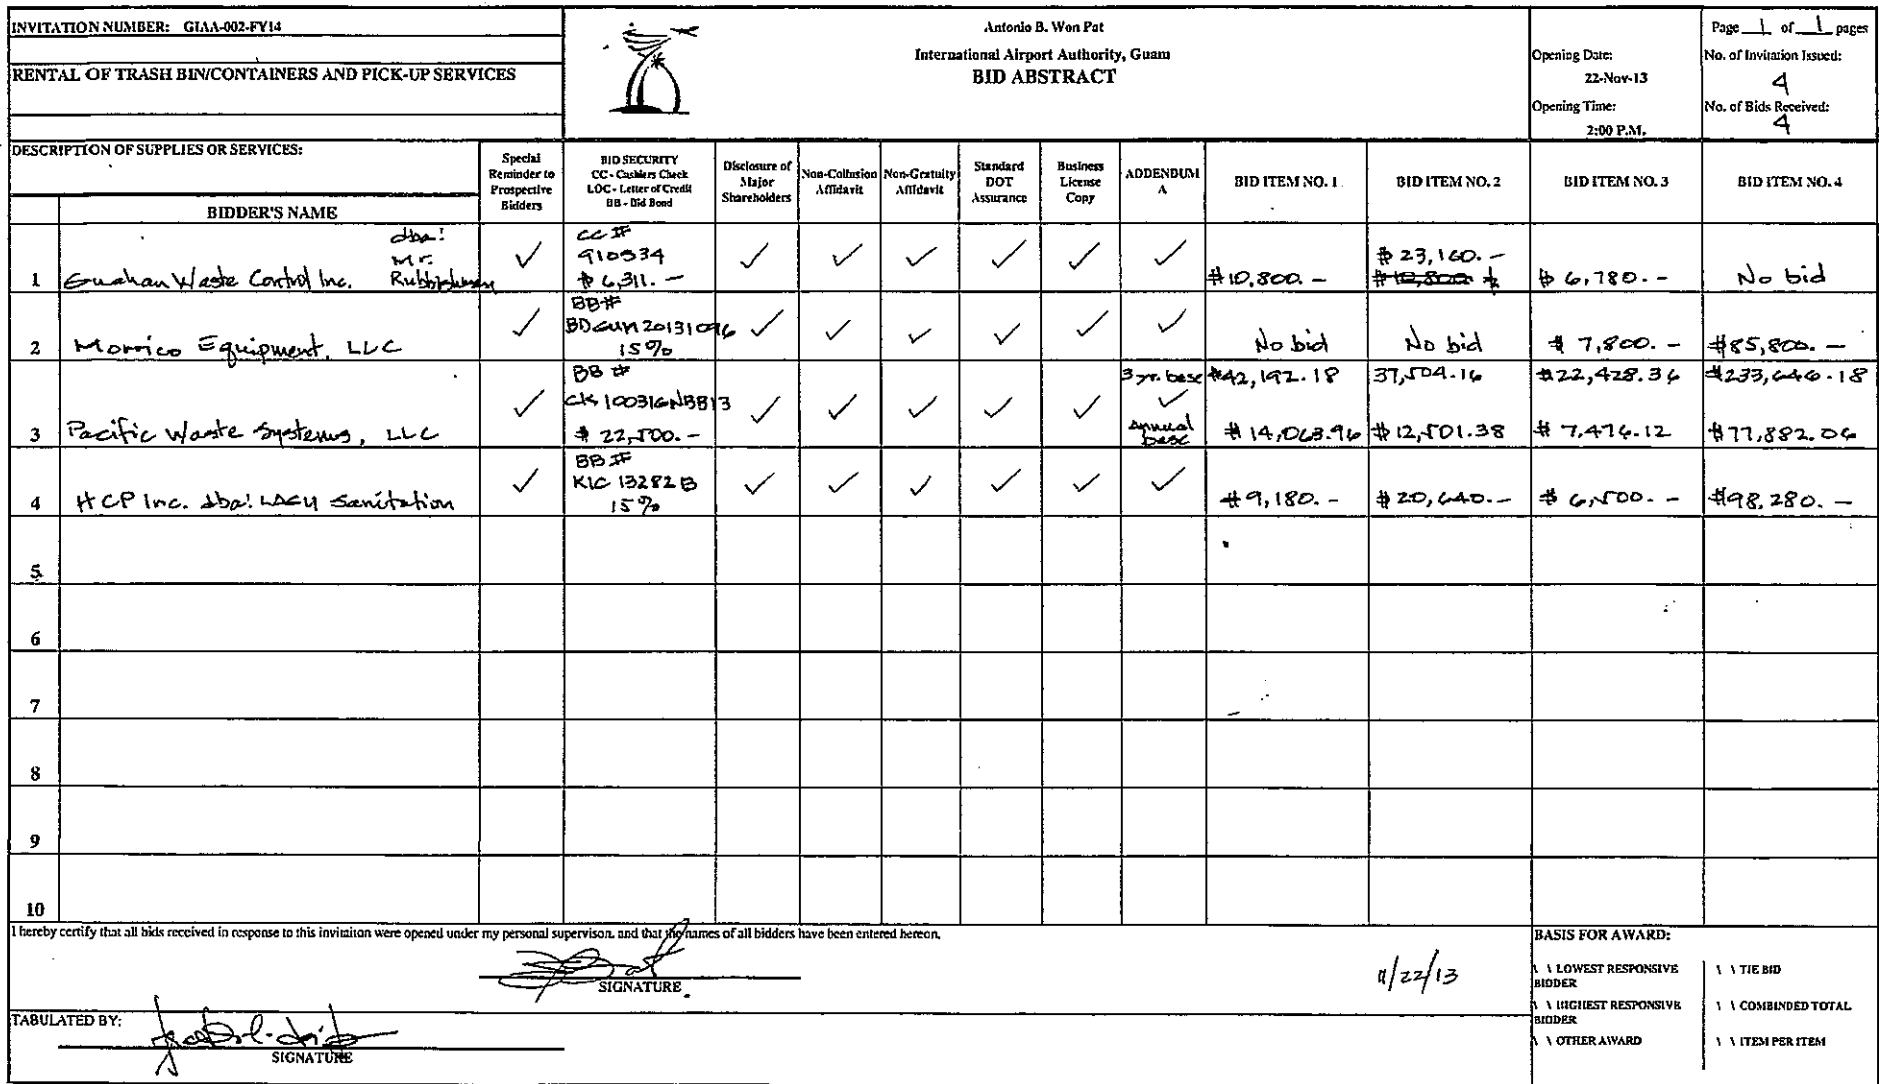 INVITATION NUMBER: GIAA-002-FY14
RENTAL OF TRASH BIN/CONTAINERS AND PICK-UP SERVICES
Antonio B. Won Pat
International Airport Authority, Guam
BID ABSTRACT
Opening Date:
22-Nov-13
Opening Time:
2:00 P.M.
Page 1 of 1 pages
No. of Invitation Issued:
4
No. of Bids Received:
4
DESCRIPTION OF SUPPLIES OR SERVICES:
BIDDER'S NAME
Special Reminder to Prospective Bidders
BID SECURITY
CC - Cashiers Check
LOC - Letter of Credit
BB - Bid Bond
Disclosure of Major Shareholders
Non-Collusion Affidavit
Non-Gratuity Affidavit
Standard DOT Assurance
Business License Copy
ADDENDUM A
BID ITEM NO. 1
BID ITEM NO. 2
BID ITEM NO. 3
BID ITEM NO. 4
1 Guahan Waste Control Inc. dba: Mr. Rubbishman ✓ CC# 910534 $6,311.- ✓ ✓ ✓ ✓ ✓ ✓ $10,800.- $23,160.- $10,800 $6,780.- No bid
2 Morrico Equipment, LLC ✓ BB# BDGUM20131096 15% ✓ ✓ ✓ ✓ ✓ ✓ No bid No bid $7,800.- $85,800.-
3 Pacific Waste Systems, LLC ✓ BB# CK100316NBB13 $22,500.- ✓ ✓ ✓ ✓ ✓ ✓
3 yr. base $42,192.18 37,504.16 $22,428.36 $233,646.18
Annual base $14,063.96 $12,501.38 $7,476.12 $77,882.06
4 HCP Inc. dba: LAGU Sanitation ✓ BB# KIC 13282B 15% ✓ ✓ ✓ ✓ ✓ ✓ $9,180.- $20,640.- $6,500.- $98,280.-
5
6
7
8
9
10
I hereby certify that all bids received in response to this invitaiton were opened under my personal supervison. and that the names of all bidders have been entered hereon.
SIGNATURE
11/22/13
TABULATED BY:
SIGNATURE
BASIS FOR AWARD:
\ \ LOWEST RESPONSIVE BIDDER
\ \ HIGHEST RESPONSIVE BIDDER
\ \ OTHER AWARD
\ \ TIE BID
\ \ COMBINDED TOTAL
\ \ ITEM PER ITEM